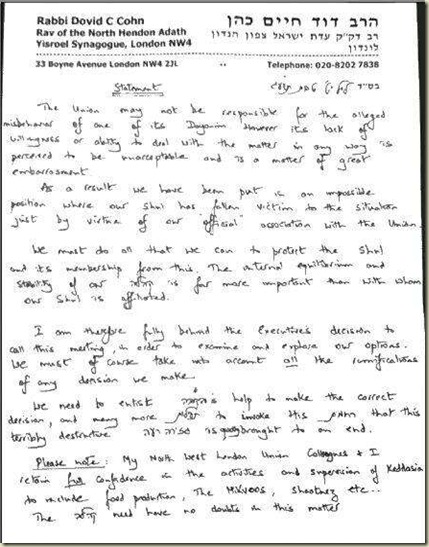 Rabbi Dovid C Cohn
Rav of the North Hendon Adath
Yisroel Synagogue, London NW4
הרב דוד חיים כהן
רב דק"ק עדת ישראל צפון הנדון
לונדון
33 Boyne Avenue London NW4 2JL
Telephone: 020-8202 7838
בס"ד
Statement
The Union may not be responsible for the alleged
misbehavior of one of its Dayonim. However its lack of
willingness or ability to deal with the matter in any way is
perceived to be unacceptable and is a matter of great
embarrassment
As a result we have been put in an impossible
position where our Shul has fallen victim to the situation
just by virtue of our "official" association with the Union.
We must do all that we can to protect the Shul
and its membership from this. The internal equilibrium and
stability of our קהלה is far more important than with whom
our Shul is affiliated.
I am therefore fully behind the Executive's decision to
call this meeting, in order to examine and explore our options.
We must of course take into account all the ramifications
of any decision we make.
We need to enlist 's help to make the correct
decision, and many more to invoke His that this
terribly destructive is brought to an end.
Please note: My North West London Union Colleagues & I
retain full confidence in the activities and supervision of Keddasia
to include food production, The Mikvoos, Shaatnez etc..
The קהלה need have no doubts in this matter